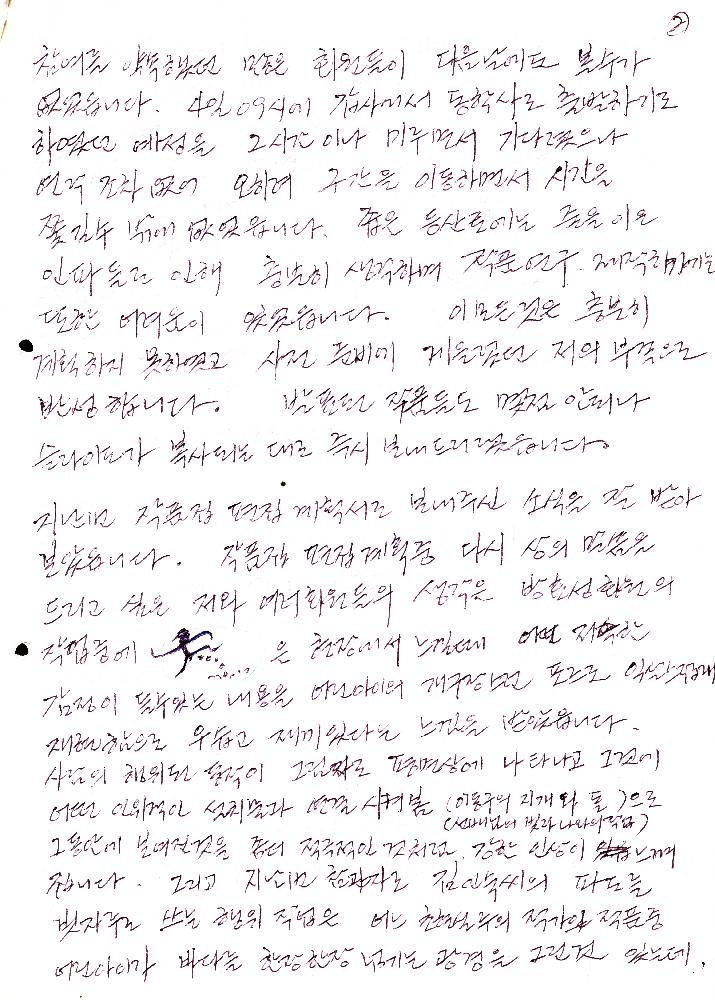 ②
참여를 약속했던 많은 회원들이 다음날에도 볼수가
없었습니다. 4일 09시에 갑사에서 동학사로 출발하기로
하였던 예정을 2시간이나 미루면서 기다렸으나
연락조차 없어 오히려 구간을 이동하면서 시간을
쫓길수 밖에 없었습니다. 좁은 등산로에는 줄을 이은
인파들로 인해 충분히 생각하며 작품연구. 제작하기에는
또한 어려움이 있었습니다. 이모든것은 충분히
계획하지 못하였고 사전 준비에 게을렀던 저의 부족으로
반성합니다. 발표된 작품들도 몇점 안되나
슬라이드가 복사되는 대로 즉시 보내드리겠습니다.
지난번 작품집 편집계획서로 보내주신 소식은 잘 받아
보았습니다. 작품집 편집계획중 다시 상의 말씀을
드리고 싶은 저와 여러회원들의 생각은 회원의
작업중에 은 현장에서 느낄때 어떤
감정이 들수있는 내용을 어린아이의 개구장이 포즈로
재현함으로 우습고 재미있다는 느낌을 받았습니다.
사람의 행위된 동작이 그림자로 평면상에 나타나고 그것에
어떤 인위적인 설치물과 연결시켜봄 (이동구의 지게와 돌)으로
(선배님의 빛과 나와의 작업)
그동안에 보여진것을 좀더 적극적인 것처럼. 강한 인상이 느껴
집니다. 그리고 지난번 참과자로 김인숙씨의 파도를
빗자루로 쓰는 행위작업은 어느 작가의 작품중
어린아이가 바다를 한장한장 넘기는 광경을 그린것 있는데.